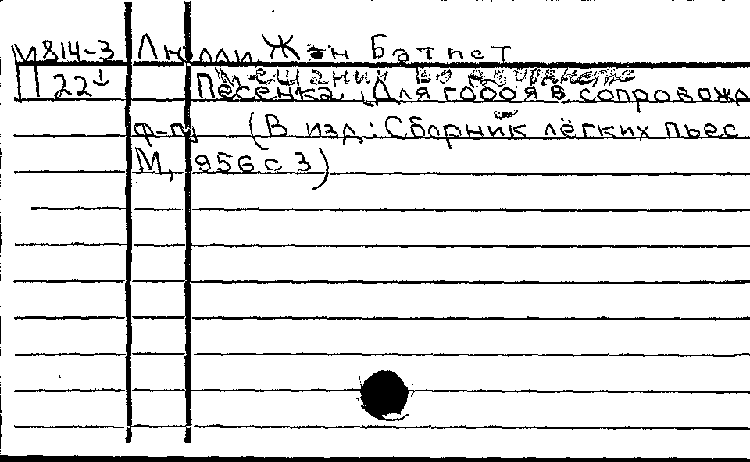 М814-3 Люлли Жан Батист
Мещанин во дворянстве
П 22 Песенка. (Для гобоя в сопровожд
ф-п) (В изд.: Сборник лёгких пьес
М, 1956 с 3)